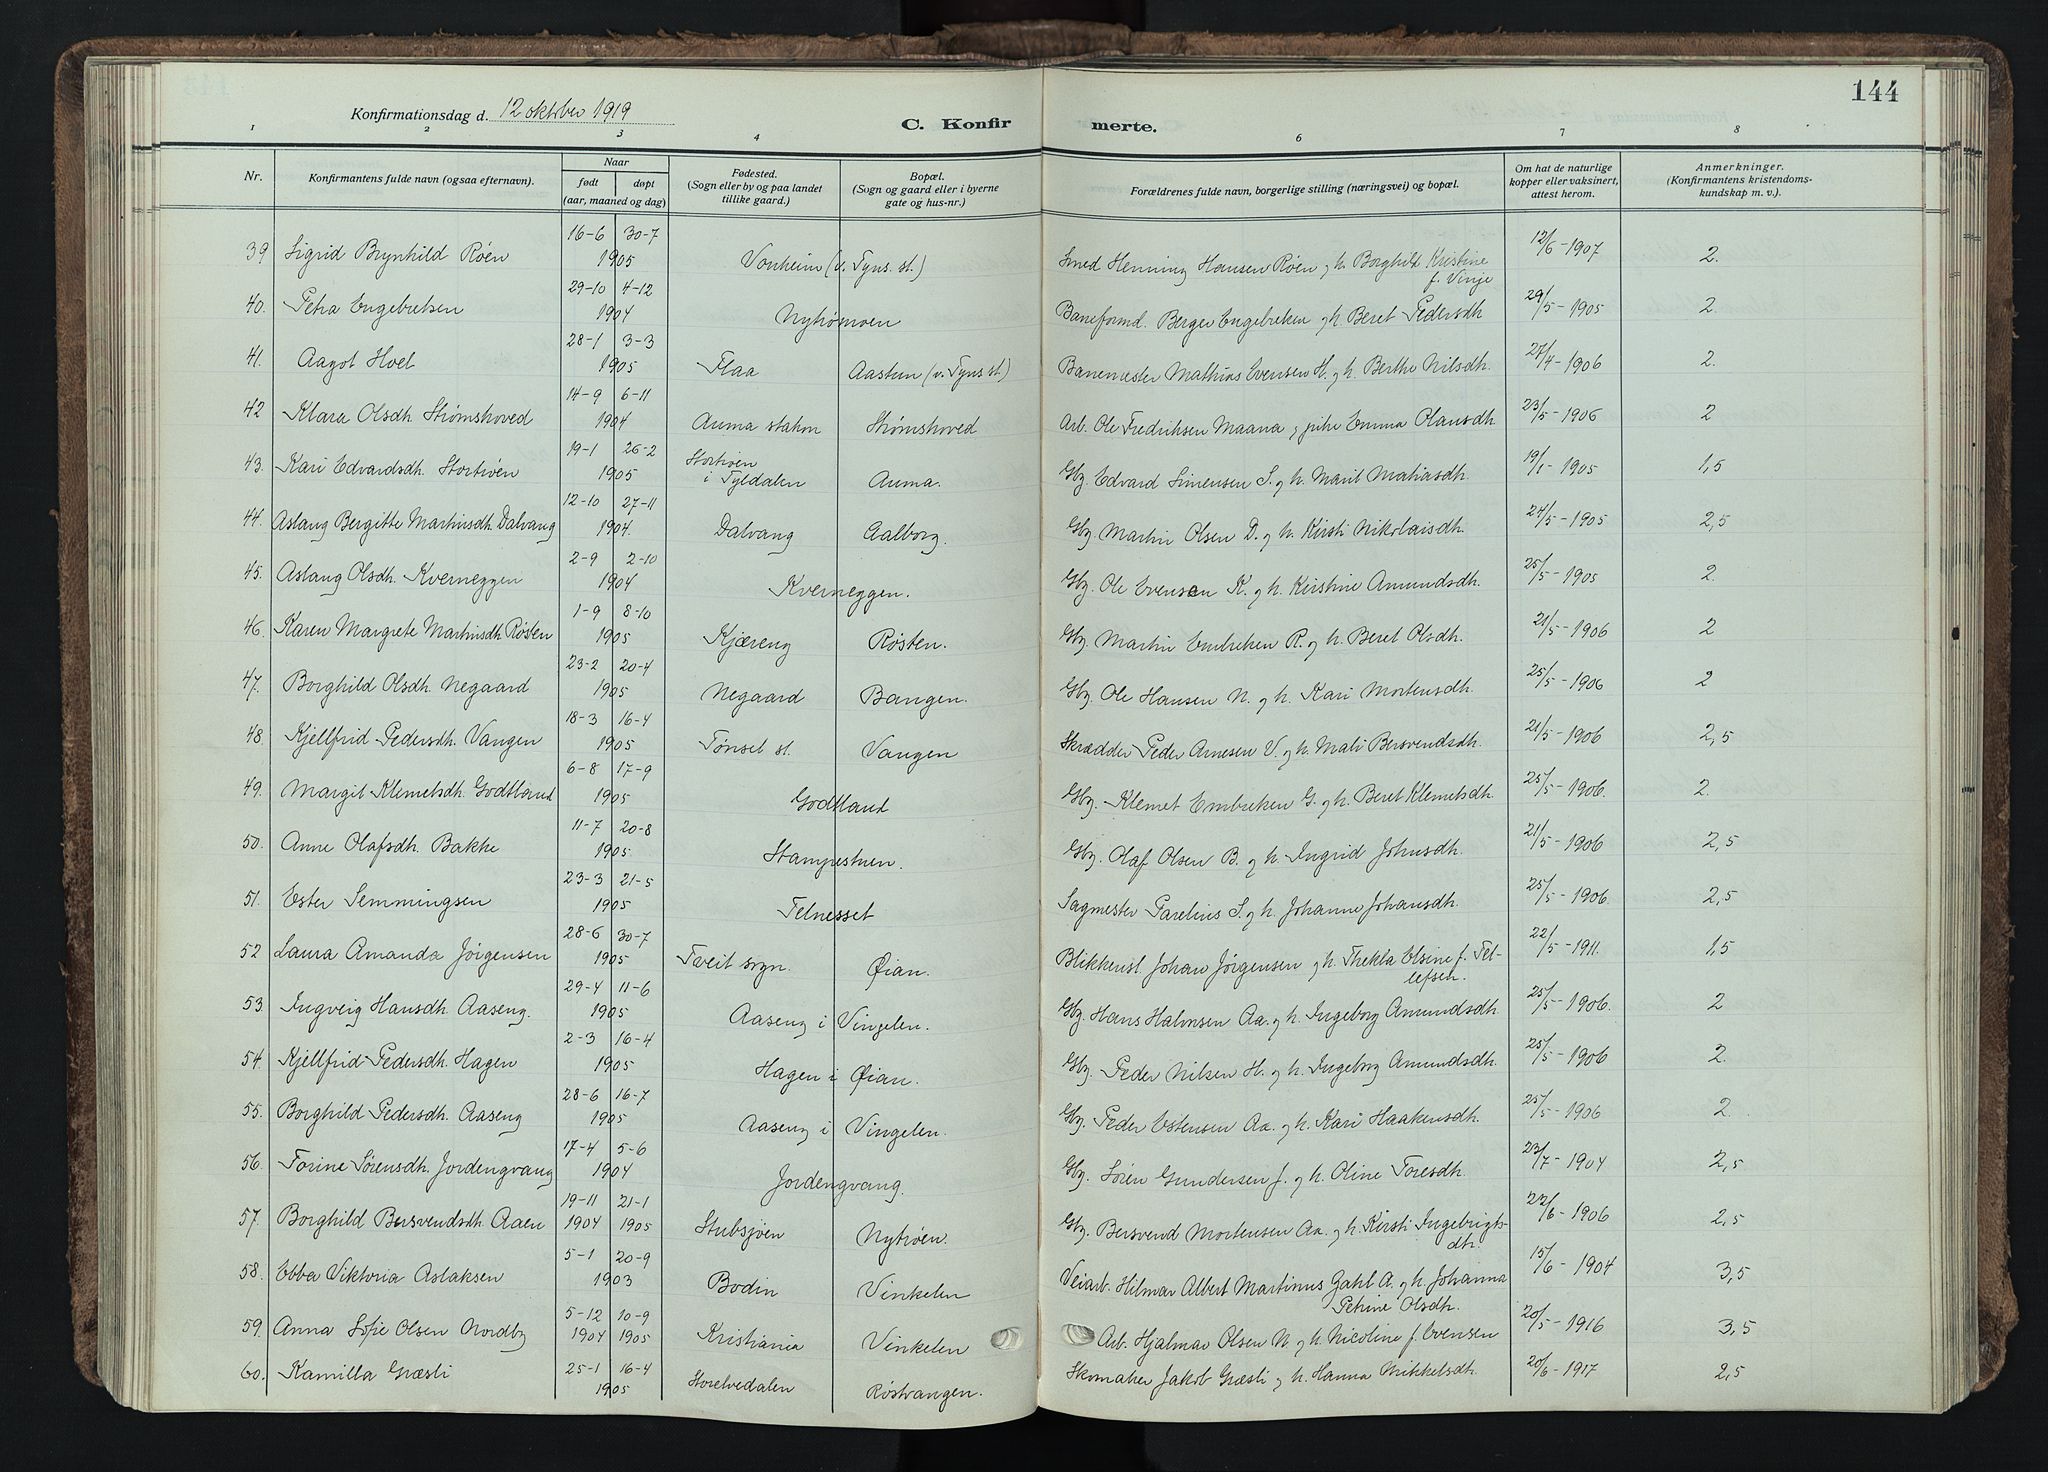 144
Konfirmationsdag d. 12 oktober 1919
C. Konfirmerte.
1 2 3 4 5 6 7 8
Nr. Konfirmantens fulde navn (ogsaa efternavn). Naar født døpt (aar, maaned og dag) Fødested. (Sogn eller by og paa landet tillike gaard.) Bopæl. (Sogn og gaard eller i byerne gate og hus-nr.) Forældrenes fulde navn, borgerlige stilling (næringsvei) og bopæl. Om hat de naturlige kopper eller vaksinert, attest herom. Anmerkninger. (Konfirmantens kristendomskundskap m. v.).
39 Sigrid Brynhild Røen 16-6 30-7 1905 Vonheim (v. Tyns. st.) Smed Henning Hansen Røen og h. Borghild Kristine f. Vinje 12/6-1907 2.
40. Petra Engebretsen 29-10 4-12 1904 Nytrømoen Baneformd. Berger Engebretsen og h. Beret Pedersdh 29/5-1905 2.
41. Aagot Hoel 28-1 3-3 1905 Flaa Aastun (v. Tyns st) Banemester Mathias Evensen H. og h. Berthe Nilsdh. 27/4-1906 2.
42 Klara Olsdh Strømshoved 14-9 6-11 1904 Auma station Strømshoved Arb. Ole Fredriksen Maana og pike Emma Olausdh 23/5-1906 2
43. Kari Edvardsdh. Stortrøen 19-1 26-2 1905 Stortrøen i Tyldalen Auma. Gbr. Edvard Simensen S. og h. Marit Matiasdh. 19/1-1905 1,5
44. Aslaug Bergitte Martinsdh Dalvang 12-10 27-11 1904. Dalvang Aalborg. Gbr. Martin Olsen D. og h. Kirsti Nikolaisdh. 24/5-1905 2,5
45. Aslaug Olsdh. Kverneggen 2-9 2-10 1904 Kverneggen. Gbr. Ole Evensen K. og h. Kristine Amundsdh. 25/5-1905 2.
46. Karen Margrete Martinsdh Røsten 1-9 8-10 1905 Kjæreng Røsten. Gbr. Martin Embretsen R. og h. Beret Olsdh. 21/5-1906 2
47. Borghild Olsdh. Negaard 23-2 20-4 1905 Negaard Bangen. Gbr. Ole Hansen N. og h. Kari Mortensdh. 25/5-1906 2
48. Kjellfrid Pedersdh. Vangen 18-3 16-4 1905 Tønset st. Vangen Skrædder Peder Arnesen V. og h. Mali Bersvendsdh. 21/5-1906 2,5
49. Margit Klemetsdh. Godtland 6-8 17-9 1905 Godtland Gbr. Klemet Embretsen G. og h. Beret Klemetsdh. 25/5-1906. 2.
50. Anne Olafsdh. Bakke 11-7 20-8 1905. Stampestuen. Gbr. Olaf Olsen B. og h. Ingrid Johnsdh. 21/5-1906 2,5
51. Ester Semmingsen 23-3 21-5 1905 Telnesset Sagmester Parelius S. og h. Johanne Johansdh. 25/5-1906. 2,5
52 Laura Amanda Jørgensen 28-6 30-7 1905 Tveit sogn. Øian. Blikkensl. Johan Jørgensen og h. Thekla Elsine f. Tellefsen. 22/5-1911. 1,5
53. Ingveig Hansdh. Aaseng. 29-4 11-6 1905 Aaseng i Vingelen. Gbr. Hans Halvorsen Aa. og h. Ingeborg Amundsdh. 25/5-1906. 2
54. Kjellfrid Pedersdh. Hagen 2-3 16-4 1905 Hagen i Øian. Gbr. Peder Nilsen H. og h. Ingeborg Amundsdh. 25/5-1906 2.
55. Borghild Pedersdh. Aaseng 28-6 16-7 1905 Aaseng i Vingelen. Gbr. Peder Estensen Aa. og h. Kari Haakensdh. 25/5-1906 2.
56. Torine Sørensdh. Jordengvang 17-4 5-6 1904 Jordengvang. Gbr. Sören Gundersen J. og h. Oline Toresdh. 23/7-1904 2,5
57. Borghild Bersvendsdh. Aaen 19-11 1904 21-1 1905 Stubsjøen Nytrøen. Gbr. Bersvend Mortensen Aa. og h. Kirsti Ingebrigtsdh. 22/6-1906 2,5
58. Ebba Viktoria Aslaksen 5-1 20-9 1903 Bodin Vinkelen Veiarb. Hilmar Albert Martinus Zahl A. og h. Johanna Petrine Olsdh. 15/6-1904 3,5
59. Anna Sofie Olsen Nordby 5-12 1904 10-9 1905 Kristiania Vinkelen Arb. Hjalmar Olsen N. og h. Nicoline f. Evensen 20/5-1916 3,5
60. Kamilla Græsli 25-1 16-4 1905 Storelvedalen Røstvangen. Skomaker Jakob Græsli og h. Hanna Mikkelsdh. 20/6-1917 2,5